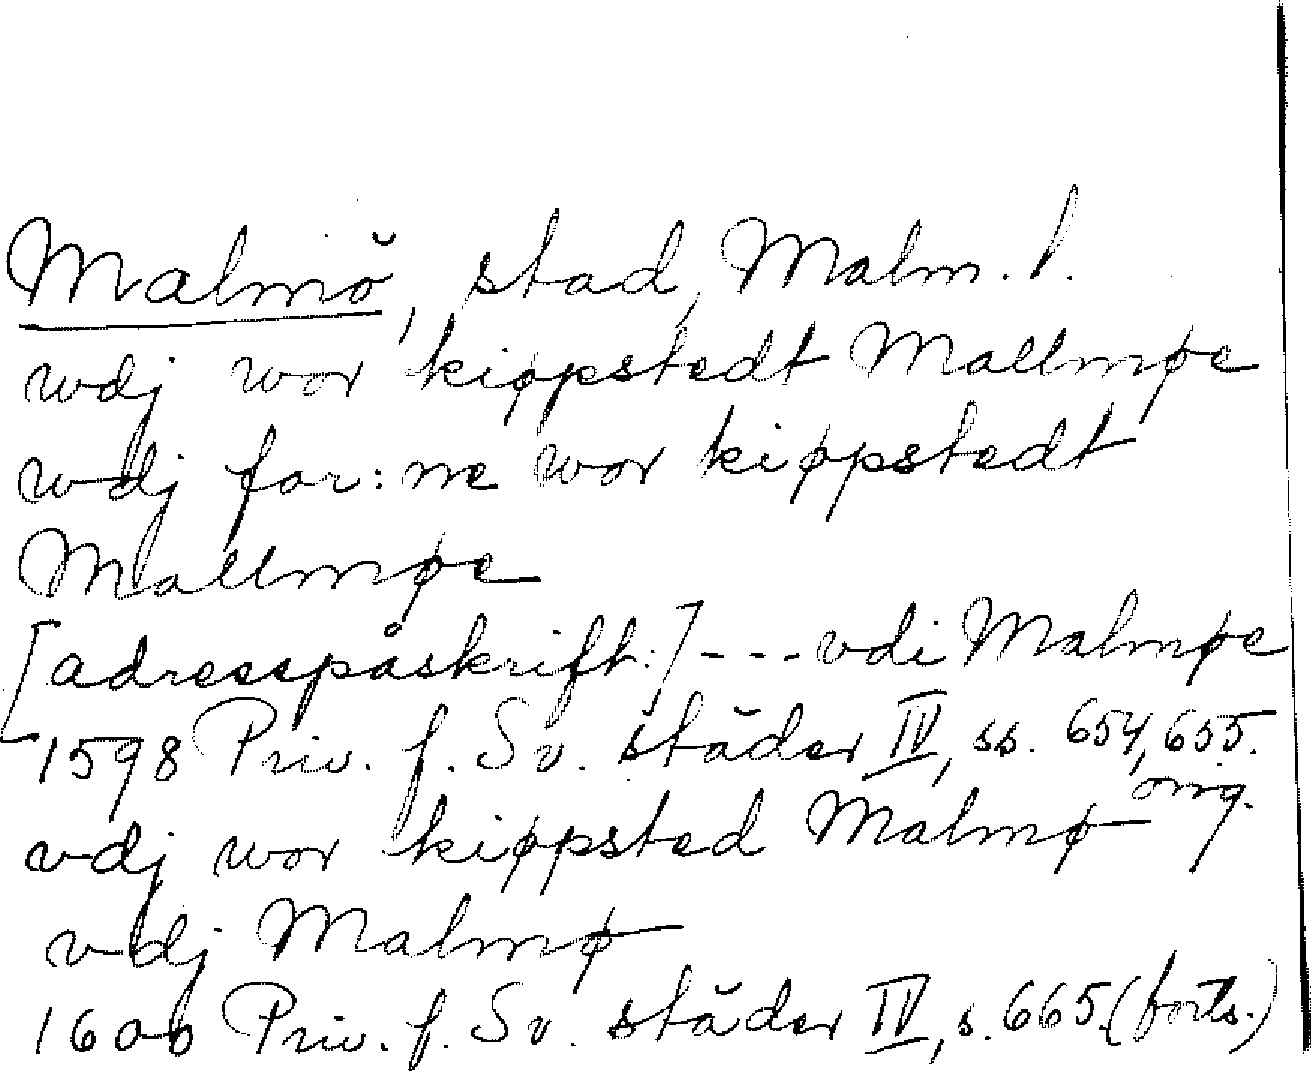 Malmö, stad, Malm. l.
wdj wor kiøpstedt Mallmøe
wdj for:ne wor kiøpstedt
Mallmøe
[adresspåskrift:] --- vdi Malmøe
1598 Priv. f. Sv. städer IV, ss. 654, 655.
vdj wor kiøpsted Malmø omg.
vdj Malmø
1600 Priv. f. Sv. städer IV, s. 665. (forts.)